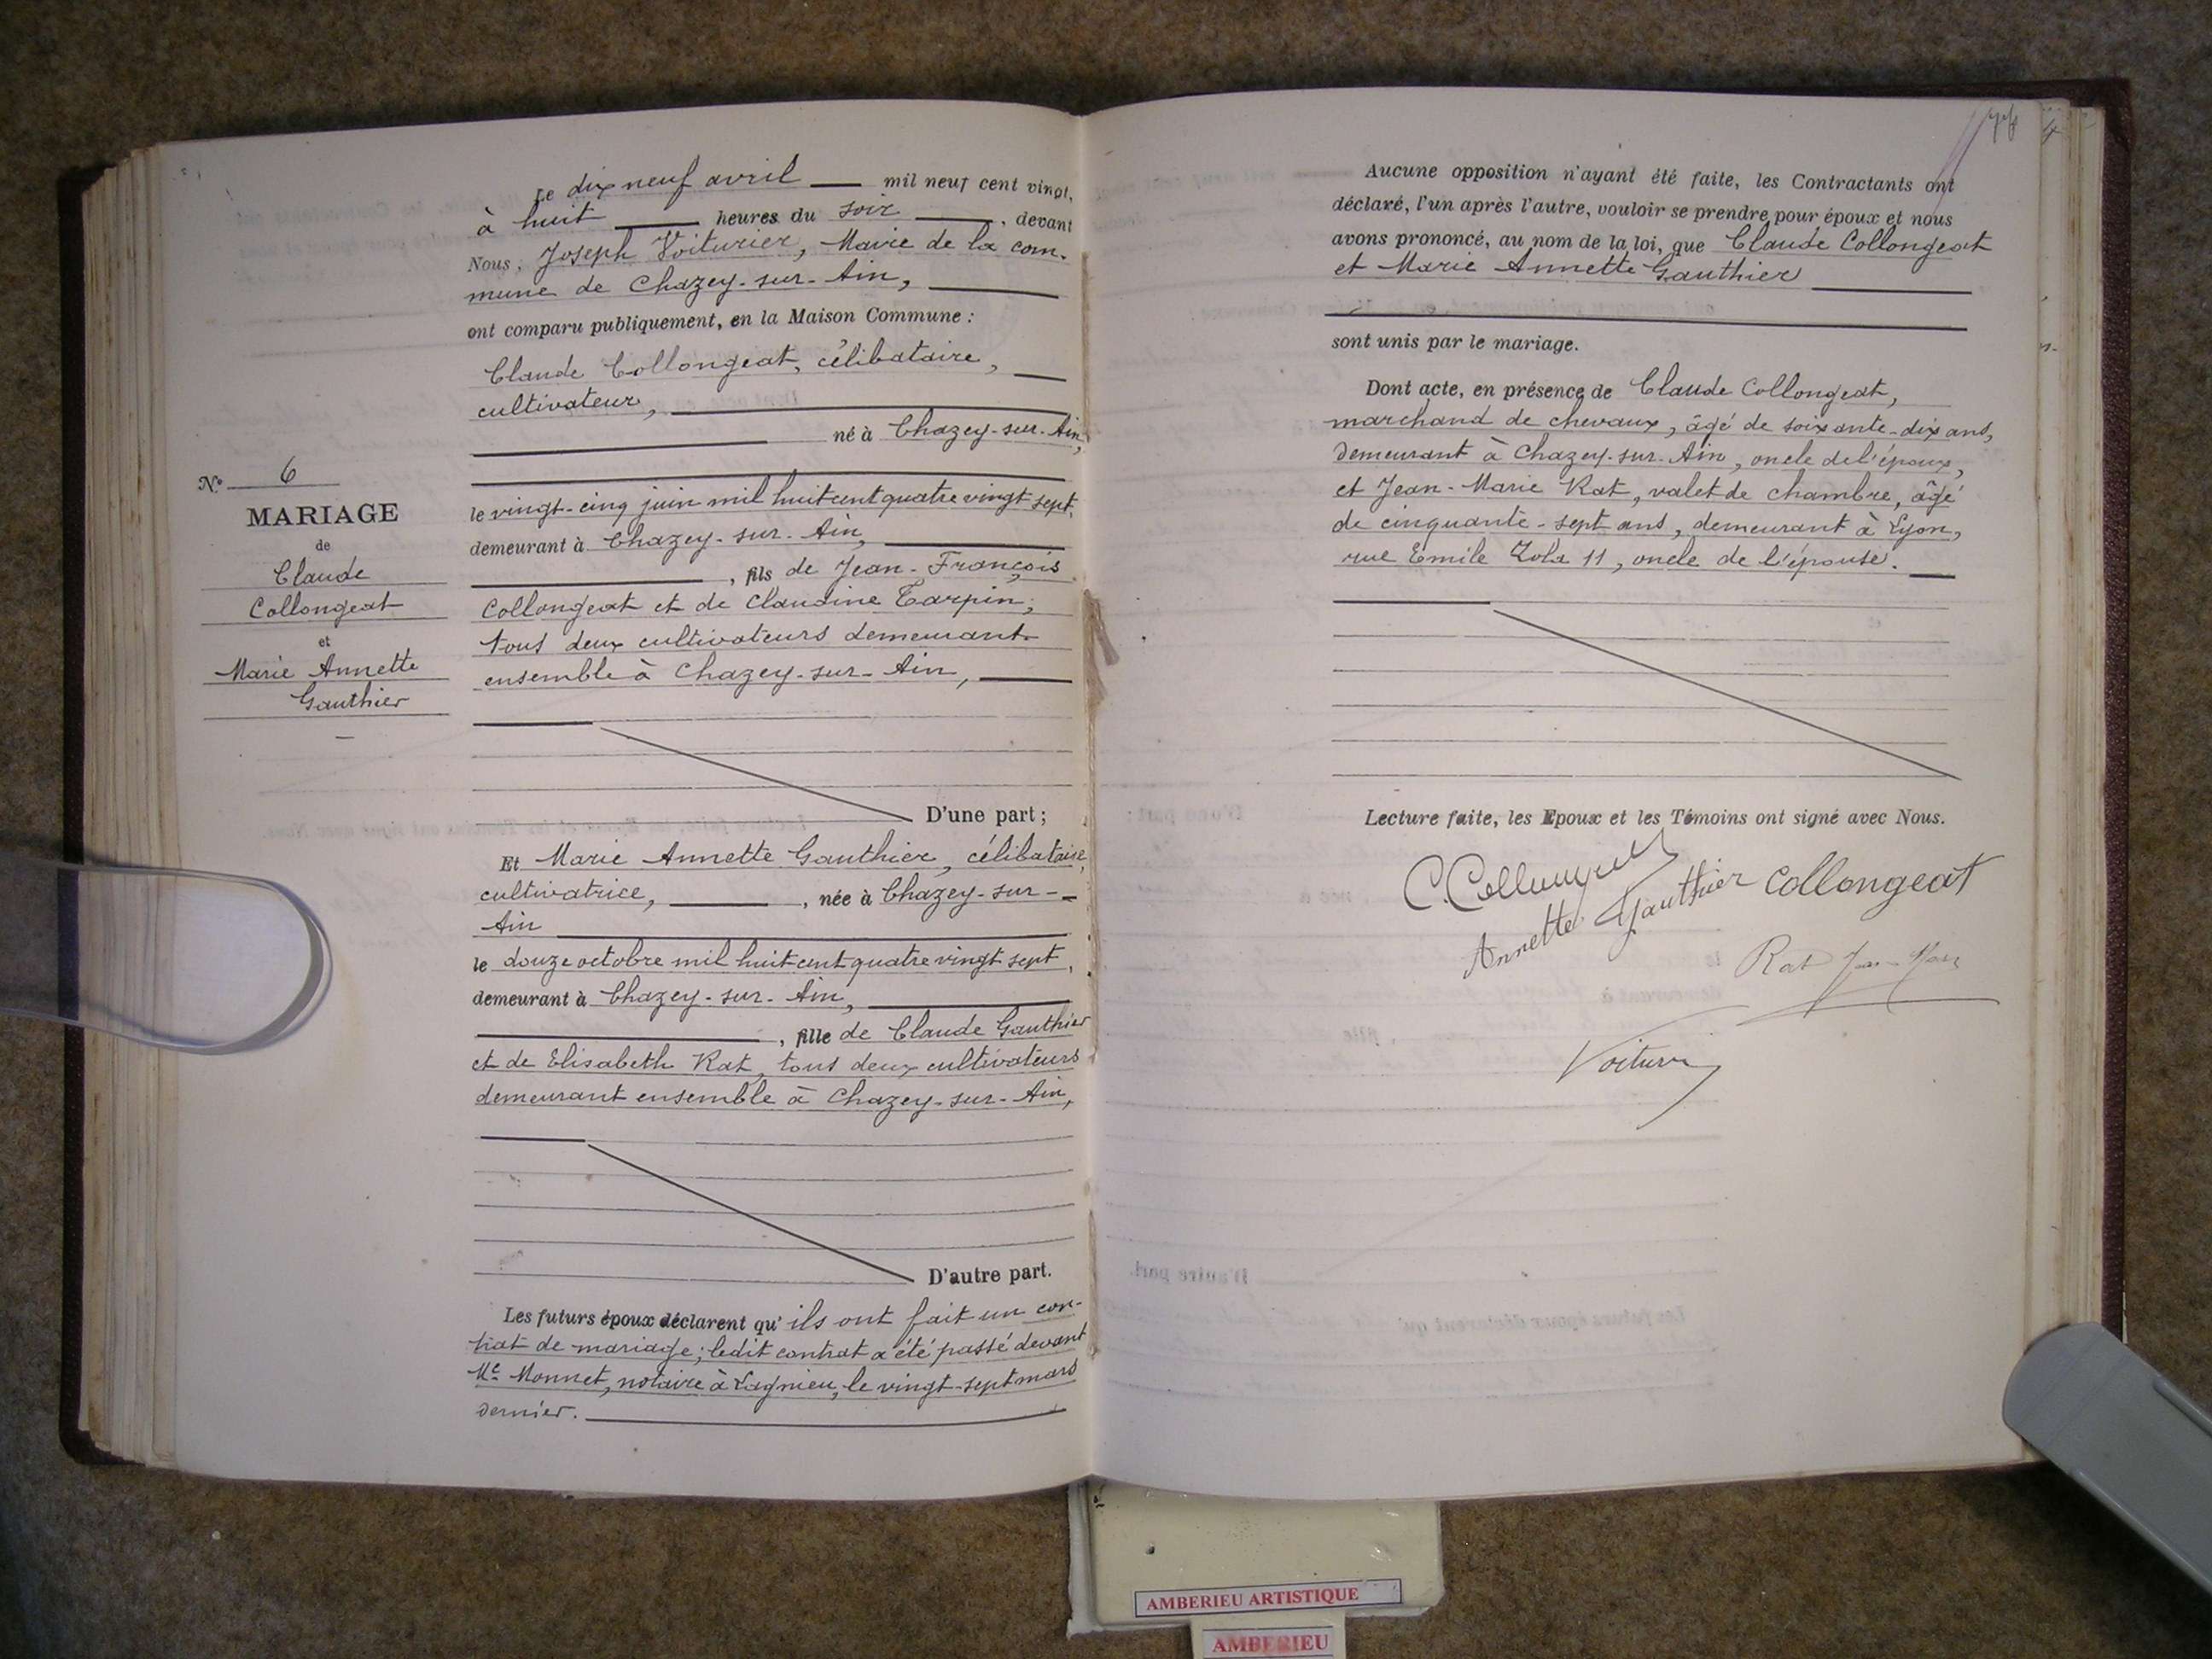 N° 6
MARIAGE
de
Claude
Collongeat
et
Marie Annette
Gauthier
Le dix neuf avril mil neuf cent vingt,
à huit heures du soir, devant
Nous, Joseph Voiturier, Maire de la com-
mune de Chazey-sur-Ain,
ont comparu publiquement, en la Maison Commune :
Claude Collongeat, célibataire,
cultivateur,
né à Chazey-sur-Ain,
le vingt-cinq juin mil huit cent quatre vingt sept,
demeurant à Chazey-sur-Ain,
, fils de Jean-François
Collongeat et de Claudine Tarpin,
tous deux cultivateurs demeurant
ensemble à Chazey-sur-Ain,
D'une part ;
Et Marie Annette Gauthier, célibataire,
cultivatrice, , née à Chazey-sur-
Ain
le douze octobre mil huit cent quatre vingt sept,
demeurant à Chazey-sur-Ain,
, fille de Claude Gauthier
et de Elisabeth Rat, tous deux cultivateurs
demeurant ensemble à Chazey-sur-Ain,
D'autre part.
Les futurs époux déclarent qu'ils ont fait un con-
trat de mariage ; ledit contrat a été passé devant
Me Monnet, notaire à Lagnieu, le vingt-sept mars
dernier.
Aucune opposition n'ayant été faite, les Contractants ont
déclaré, l'un après l'autre, vouloir se prendre pour époux et nous
avons prononcé, au nom de la loi, que Claude Collongeat
et Marie Annette Gauthier
sont unis par le mariage.
Dont acte, en présence de Claude Collongeat,
marchand de chevaux, âgé de soixante-dix ans,
demeurant à Chazey-sur-Ain, oncle de l'époux,
et Jean-Marie Rat, valet de chambre, âgé
de cinquante-sept ans, demeurant à Lyon,
rue Emile Zola 11, oncle de l'épouse.
Lecture faite, les Epoux et les Témoins ont signé avec Nous.
C. Collongeat
Annette Gauthier Collongeat
Rat Jean-Marie
Voiturier
AMBERIEU ARTISTIQUE
AMBERIEU